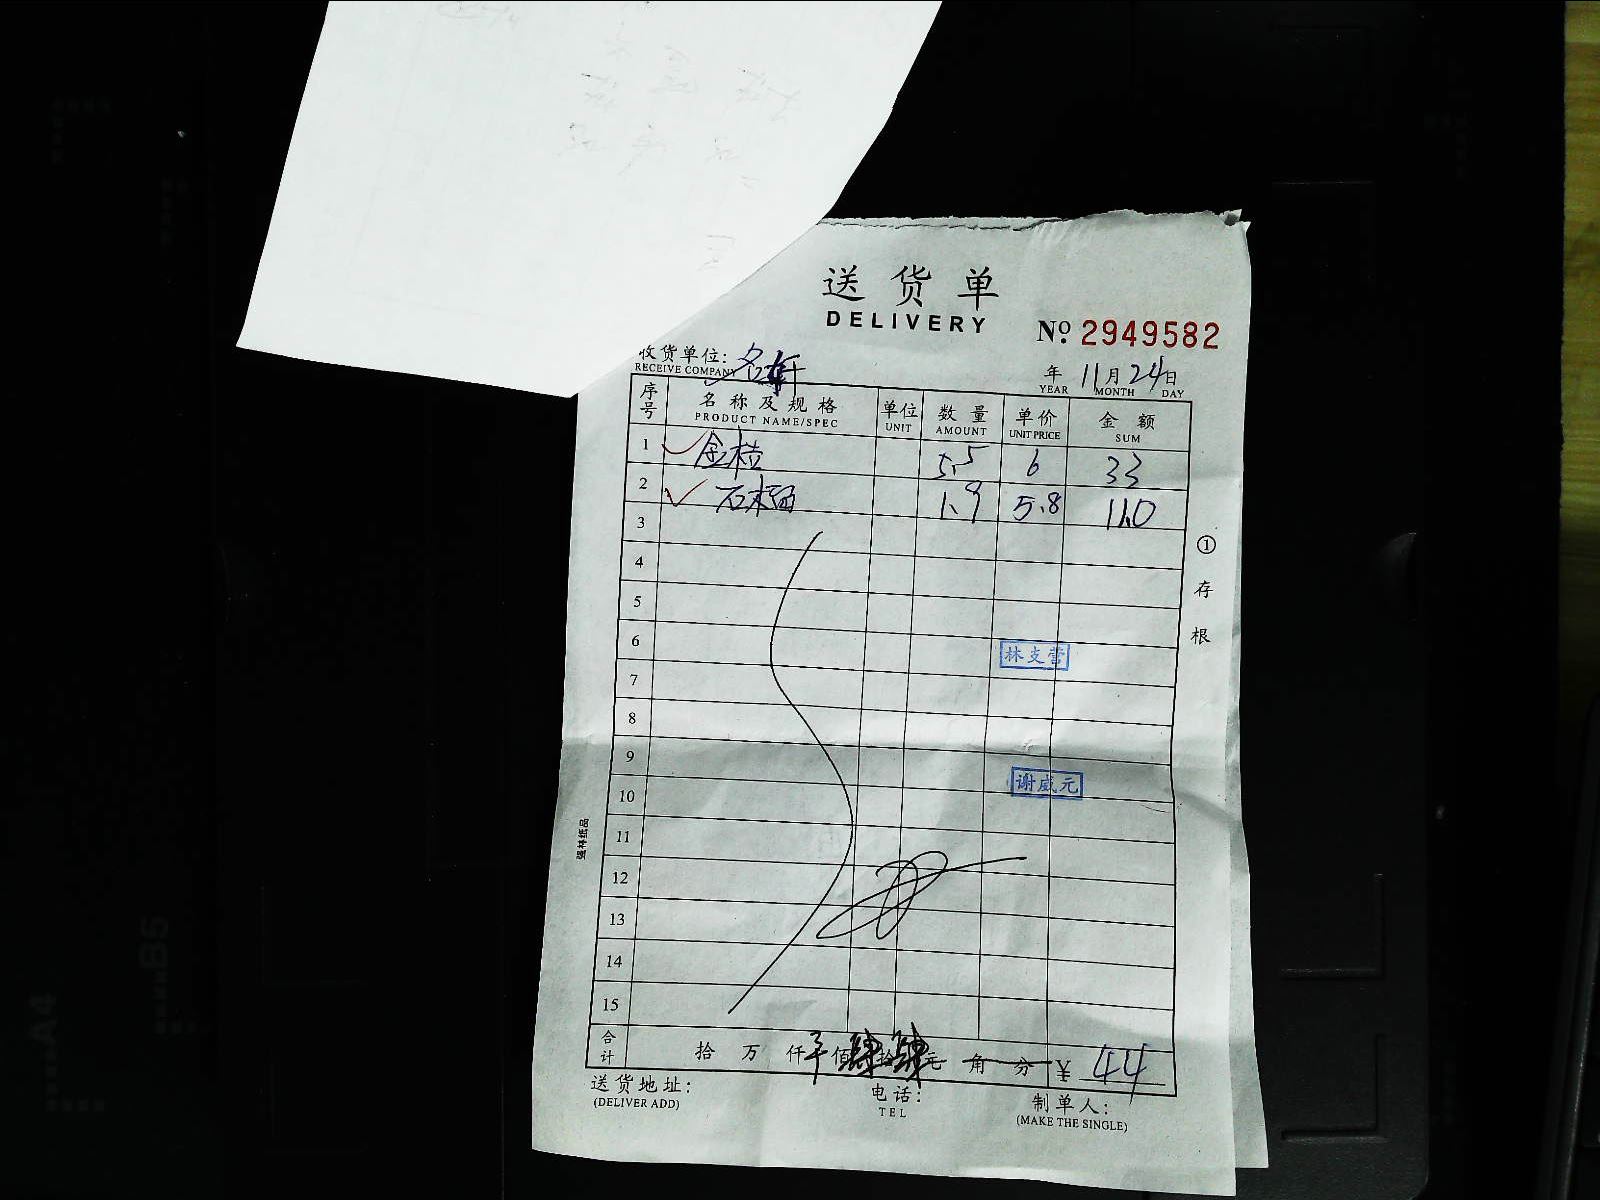 送货单
DELIVERY
№ 2949582
收货单位: 名轩
RECEIVE COMPANY
年 11月24日
YEAR MONTH DAY
序号 名称及规格 单位 数量 单价 金额
PRODUCT NAME/SPEC UNIT AMOUNT UNIT PRICE SUM
1 金桔 5.5 6 33
2 石榴 1.9 5.8 11.0
3
4
5
6 林支营
7
8
9
10 谢威元
11
12
13
14
15
① 存根
强林纸品
合计 拾 万 仟 佰 肆 拾 肆 元 角 分 ¥ 44
送货地址: 电话: 制单人:
(DELIVER ADD) TEL (MAKE THE SINGLE)
A4
B5